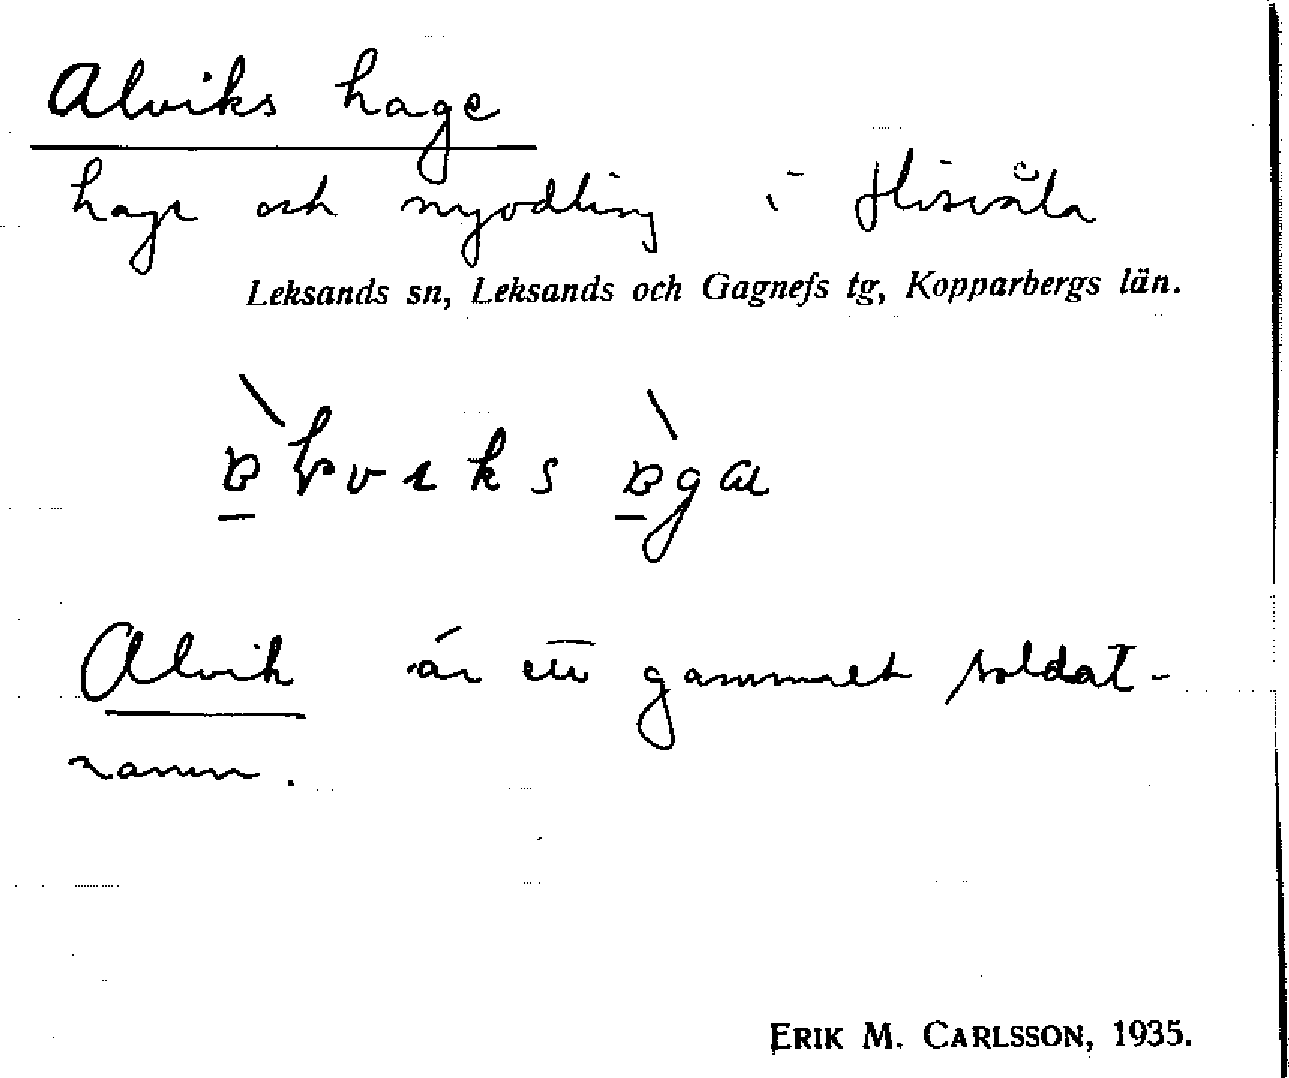 Alviks hage
hage och nyodling i Hisvåla
Leksands sn, Leksands och Gagnefs tg, Kopparbergs län.
Alvik är ett gammalt soldat-
namn.
ERIK M. CARLSSON, 1935.